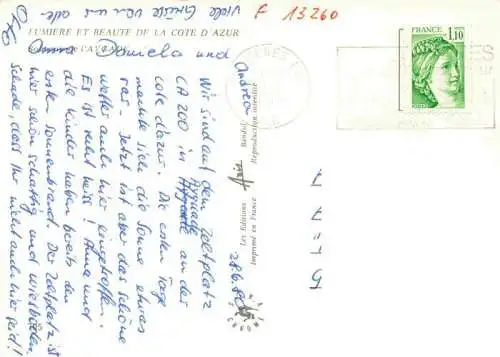 F 13260
Viele Grüße von uns allen
LUMIERE ET BEAUTE DE LA COTE D'AZUR
Daniela und
Andrea
Wir sind auf dem Zeltplatz
CA 200 in Ayguade
Ayguade an der
Cote d'azur. Die ersten Tage
machte sich die Sonne etwas
rar. Jetzt ist aber das schöne
Wetter auch hier eingetroffen.
Es ist sehr heiß! Anne und
die Kinder haben bereits den
ersten Sonnenbrand. Der Zeltplatz ist
hier schön schattig und
schade, dass Ihr nicht auch hier seid!
28.6.80
Les Editions Aris Bandol
Imprimé en France Reproduction interdite
FRANCE
1,10